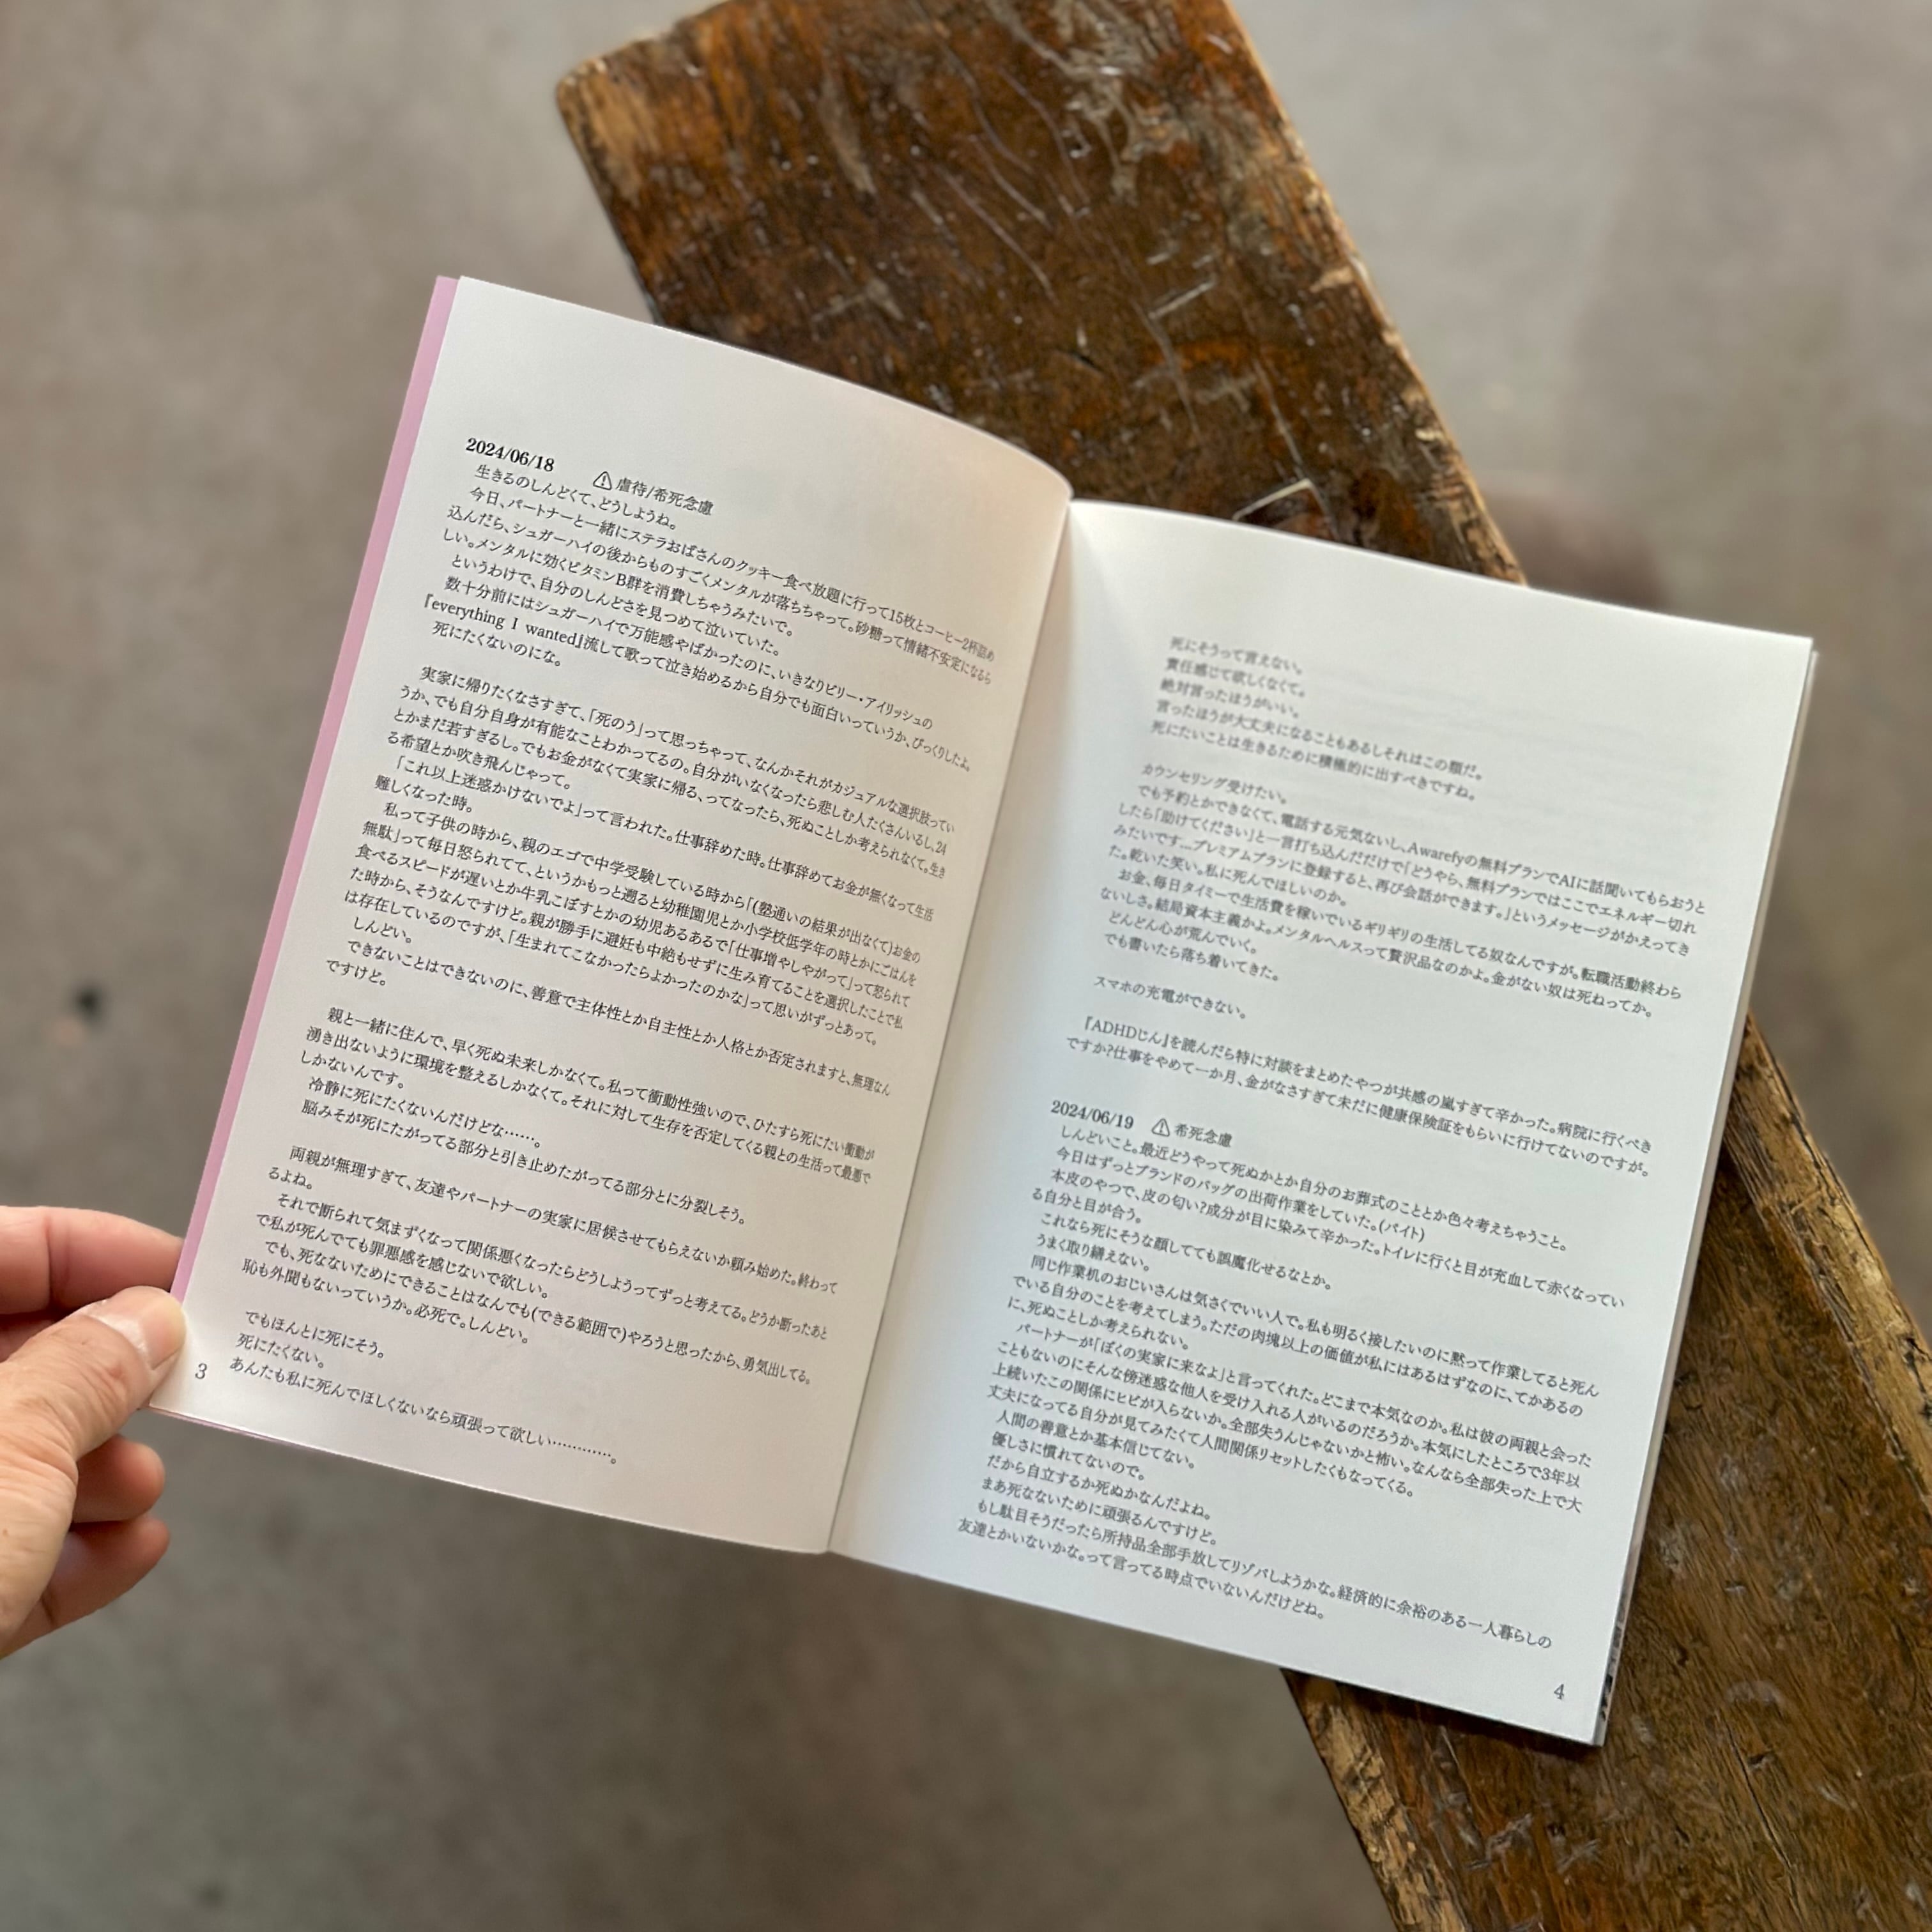 2024/06/18 ⚠虐待/希死念慮
生きるのしんどくて、どうしようね。
今日、パートナーと一緒にステラおばさんのクッキー食べ放題に行って15枚とコーヒー2杯詰め
込んだら、シュガーハイの後からものすごくメンタルが落ちちゃって。砂糖って情緒不安定になるら
しい。メンタルに効くビタミンB群を消費しちゃうみたいで。
というわけで、自分のしんどさを見つめて泣いていた。
数十分前にはシュガーハイで万能感やばかったのに、いきなりビリー・アイリッシュの
『everything I wanted』流して歌って泣き始めるから自分でも面白いっていうか、びっくりしたよ。
死にたくないのにな。
実家に帰りたくなさすぎて、「死のう」って思っちゃって、なんかそれがカジュアルな選択肢ってい
うか、でも自分自身が有能なことわかってるの。自分がいなくなったら悲しむ人たくさんいるし、24
とかまだ若すぎるし。でもお金がなくて実家に帰る、ってなったら、死ぬことしか考えられなくて。生き
る希望とか吹き飛んじゃって。
「これ以上迷惑かけないでよ」って言われた。仕事辞めた時。仕事辞めてお金が無くなって生活
難しくなった時。
私って子供の時から、親のエゴで中学受験している時から「(塾通いの結果が出なくて)お金の
無駄」って毎日怒られてて、というかもっと遡ると幼稚園児とか小学校低学年の時とかにごはんを
食べるスピードが遅いとか牛乳こぼすとかの幼児あるあるで「仕事増やしやがって」って怒られて
た時から、そうなんですけど。親が勝手に避妊も中絶もせずに生み育てることを選択したことで私
は存在しているのですが、「生まれてこなかったらよかったのかな」って思いがずっとあって。
しんどい。
できないことはできないのに、善意で主体性とか自主性とか人格とか否定されますと、無理なん
ですけど。
親と一緒に住んで、早く死ぬ未来しかなくて。私って衝動性強いので、ひたすら死にたい衝動が
湧き出ないように環境を整えるしかなくて。それに対して生存を否定してくる親との生活って最悪で
しかないんです。
冷静に死にたくないんだけどな……。
脳みそが死にたがってる部分と引き止めたがってる部分とに分裂しそう。
両親が無理すぎて、友達やパートナーの実家に居候させてもらえないか頼み始めた。終わって
るよね。
それで断られて気まずくなって関係悪くなったらどうしようってずっと考えてる。どうか断ったあと
で私が死んでても罪悪感を感じないで欲しい。
でも、死なないためにできることはなんでも(できる範囲で)やろうと思ったから、勇気出してる。
恥も外聞もないっていうか。必死で。しんどい。
でもほんとに死にそう。
死にたくない。
あんたも私に死んでほしくないなら頑張って欲しい…………。
3
死にそうって言えない。
責任感じて欲しくなくて。
絶対言ったほうがいい。
言ったほうが大丈夫になることもあるしそれはこの類だ。
死にたいことは生きるために積極的に出すべきですね。
カウンセリング受けたい。
でも予約とかできなくて、電話する元気ないし、Awarefyの無料プランでAIに話聞いてもらおうと
したら「助けてください」と一言打ち込んだだけで「どうやら、無料プランではここでエネルギー切れ
みたいです...プレミアムプランに登録すると、再び会話ができます。」というメッセージがかえってき
た。乾いた笑い。私に死んでほしいのか。
お金、毎日タイミーで生活費を稼いでいるギリギリの生活してる奴なんですが。転職活動終わら
ないしさ。結局資本主義かよ。メンタルヘルスって贅沢品なのかよ。金がない奴は死ねってか。
どんどん心が荒んでいく。
でも書いたら落ち着いてきた。
スマホの充電ができない。
『ADHDじん』を読んだら特に対談をまとめたやつが共感の嵐すぎて辛かった。病院に行くべき
ですか?仕事をやめて一か月、金がなさすぎて未だに健康保険証をもらいに行けてないのですが。
2024/06/19 ⚠希死念慮
しんどいこと。最近どうやって死ぬかとか自分のお葬式のこととか色々考えちゃうこと。
今日はずっとブランドのバッグの出荷作業をしていた。(バイト)
本皮のやつで、皮の匂い?成分が目に染みて辛かった。トイレに行くと目が充血して赤くなってい
る自分と目が合う。
これなら死にそうな顔してても誤魔化せるなとか。
うまく取り繕えない。
同じ作業机のおじいさんは気さくでいい人で。私も明るく接したいのに黙って作業してると死ん
でいる自分のことを考えてしまう。ただの肉塊以上の価値が私にはあるはずなのに、てかあるの
に、死ぬことしか考えられない。
パートナーが「ぼくの実家に来なよ」と言ってくれた。どこまで本気なのか。私は彼の両親と会った
こともないのにそんな傍迷惑な他人を受け入れる人がいるのだろうか。本気にしたところで3年以
上続いたこの関係にヒビが入らないか。全部失うんじゃないかと怖い。なんなら全部失った上で大
丈夫になってる自分が見てみたくて人間関係リセットしたくもなってくる。
人間の善意とか基本信じてない。
優しさに慣れてないので。
だから自立するか死ぬかなんだよね。
まあ死なないために頑張るんですけど。
もし駄目そうだったら所持品全部手放してリゾバしようかな。経済的に余裕のある一人暮らしの
友達とかいないかな。って言ってる時点でいないんだけどね。
4